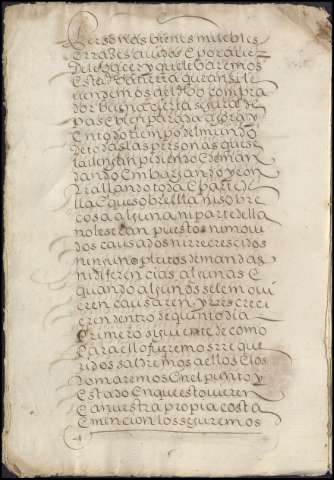 Personas bienes muebles
E rraizes avidos E por aver
de los azer y que le haremos
E sta d ta tierra que ansi le
vendemos al dho compra
dor buena cierta segura de
pas E bien parada agora y
En todo tiempo del mundo
de todas las personas que se
la demanpidiendo E deman
dando Embargando y con
trallando toda E parte de
lla E que sobre ella ni sobre
cosa alguna ni parte della
no les eran puestos ni movi
dos causados ni rrecrescidos
ningunos plitos demandas
ni diferencias algunas E
quando algunos se le movi
eren causaren y rrescrecí
eren dentro de quinto dia
primero siguiente de como
para ello fueremos rreque
ridos saldremos a ellos E los
tomaremos En el punto y
Estado En que estuvieren
E a nuestra propia costa
E mincion los seguiremos